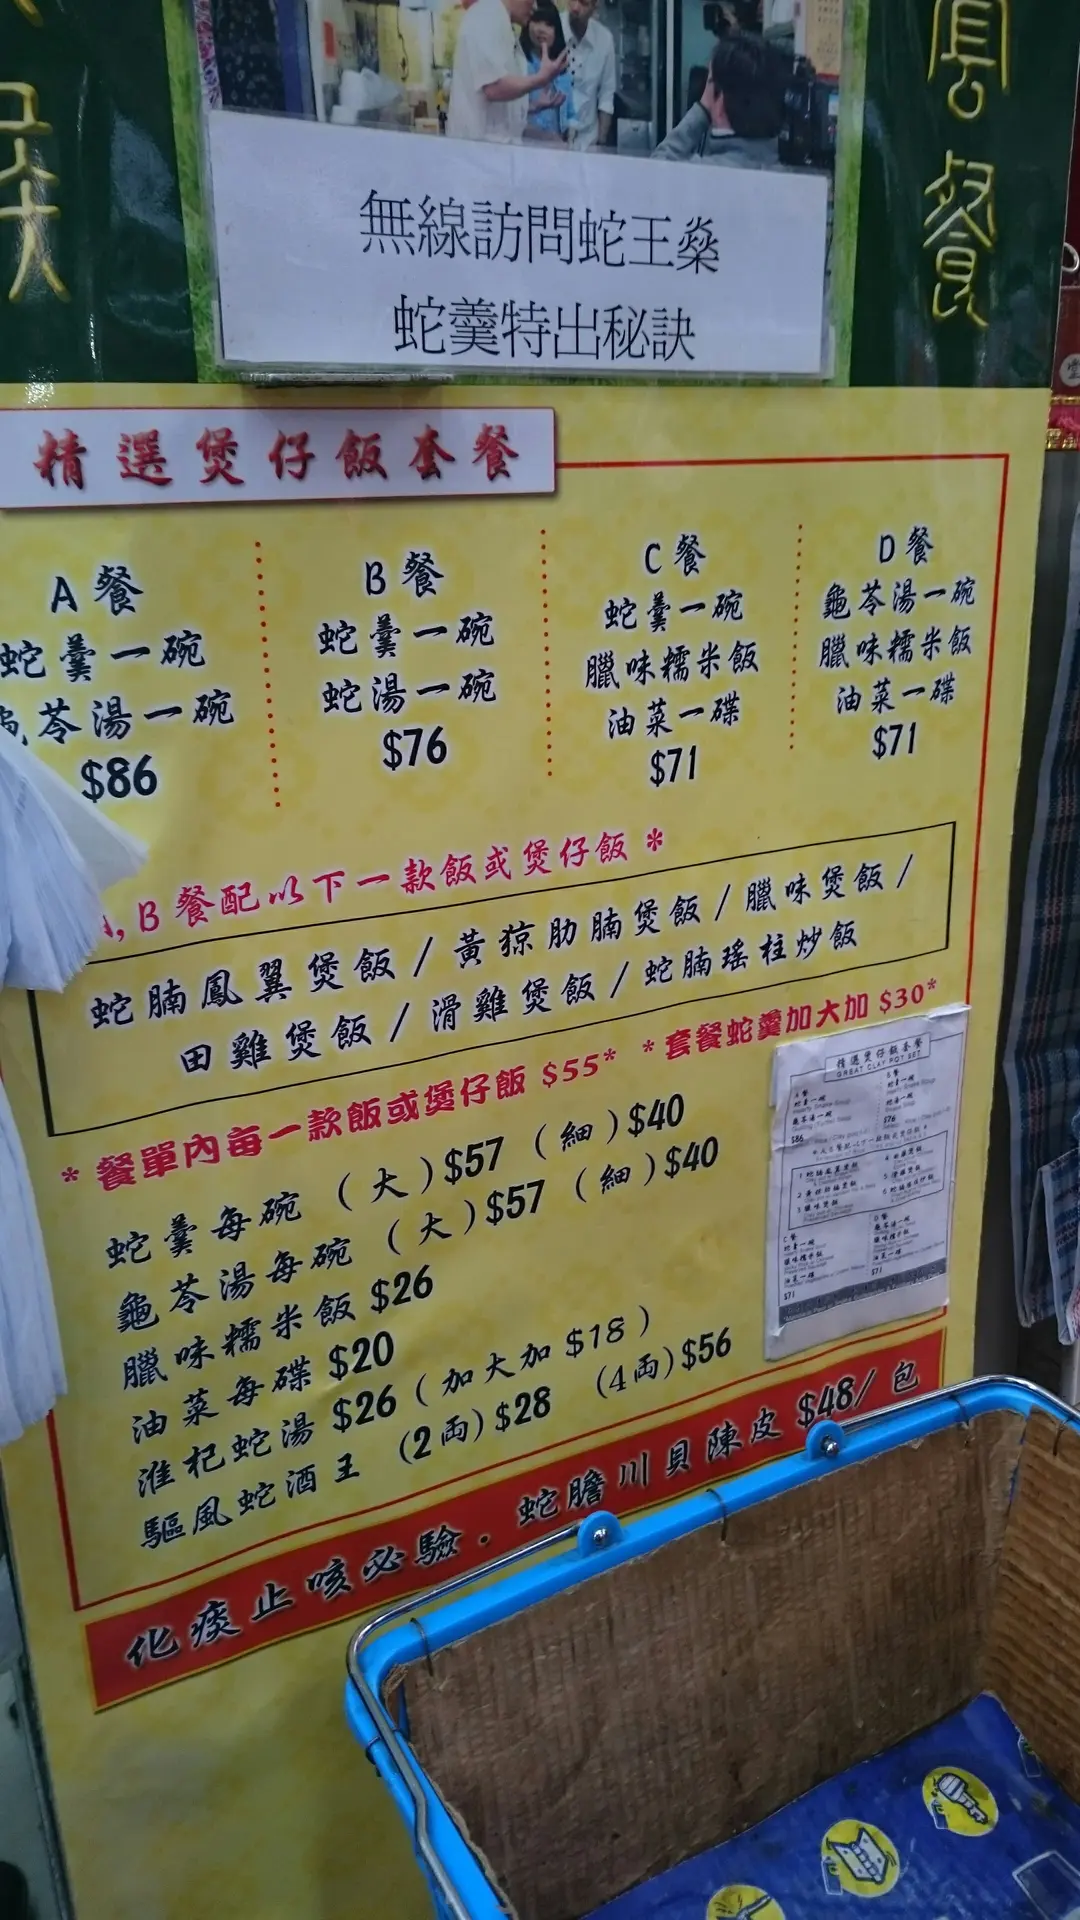 無線訪問蛇王燊
蛇羹特出秘訣
精選煲仔飯套餐
A 餐
蛇羹一碗
龜苓湯一碗
$86
B 餐
蛇羹一碗
蛇湯一碗
$76
C 餐
蛇羹一碗
臘味糯米飯
油菜一碟
$71
D 餐
龜苓湯一碗
臘味糯米飯
油菜一碟
$71
A, B 餐配以下一款飯或煲仔飯 *
蛇腩鳳翼煲飯 / 黃猄肋腩煲飯 / 臘味煲飯 /
田雞煲飯 / 滑雞煲飯 / 蛇腩瑤柱炒飯
* 餐單內每一款飯或煲仔飯 $55* * 套餐蛇羹加大加 $30*
蛇羹每碗 (大) $57 (細) $40
龜苓湯每碗 (大) $57 (細) $40
臘味糯米飯 $26
油菜每碟 $20
淮杞蛇湯 $26 (加大加 $18)
驅風蛇酒王 (2両) $28 (4両) $56
化痰止咳必驗．蛇膽川貝陳皮 $48/ 包
精選煲仔飯套餐
GREAT CLAY POT SET
餐